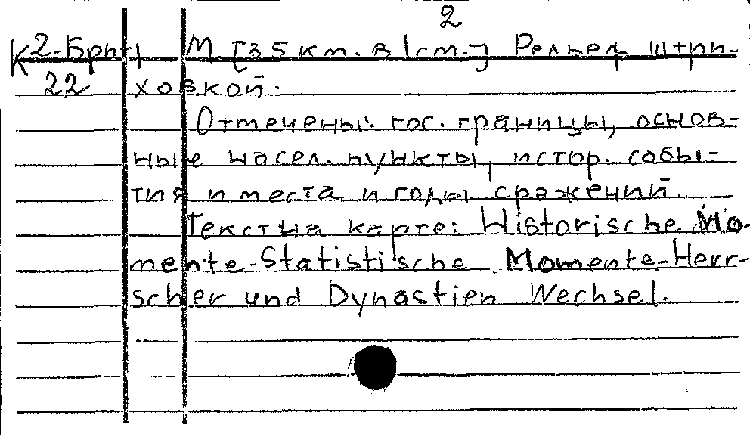 2
К 2-Брит М [35 км. в 1 см.] Рельеф штри-
22 ховкой.
Отмечены гос. границы, основ-
ные насел. пункты, истор. собы-
тия и места и годы сражений.
Тексты на карте: Historische Mo-
mente-Statistische Momente-Herr-
scher und Dynastien Wechsel.